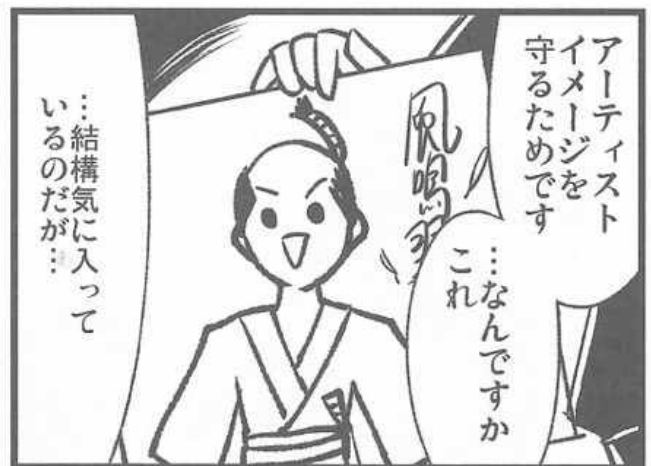 アーティスト
イメージを
守るためです
…なんですか
これ
風鳴翼
…結構気に入って
いるのだが…